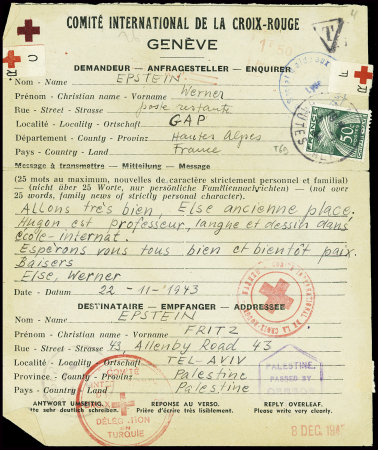 COMITÉ INTERNATIONAL DE LA CROIX-ROUGE
GENÈVE
DEMANDEUR — ANFRAGESTELLER — ENQUIRER
Nom - Name EPSTEIN
Prénom - Christian name - Vorname Werner
Rue - Street - Strasse poste restante
Localité - Locality - Ortschaft GAP
Département - County - Provinz Hautes Alpes
Pays - Country - Land France
Message à transmettre — Mitteilung — Message
(25 mots au maximum, nouvelles de caractère strictement personnel et familial)
— (nicht über 25 Worte, nur persönliche Familiennachrichten) — (not over
25 words, family news of strictly personal character).
Allons très bien, Else ancienne place,
Hugon est professeur, langue et dessin dans
école-internat.
Espérons vous tous bien et bientôt paix.
Baisers
Else, Werner
Date - Datum 22-11-1943
DESTINATAIRE — EMPFANGER — ADDRESSEE
Nom - Name EPSTEIN
Prénom - Christian name - Vorname FRITZ
Rue - Street - Strasse 43, Allenby Road 43
Localité - Locality - Ortschaft TEL-AVIV
Province - County - Provinz Palestine
Pays - Country - Land Palestine
ANTWORT UMSEITIG. RÉPONSE AU VERSO. REPLY OVERLSAF.
Bitte sehr deutlich schreiben. Prière d'écrire très lisiblement. Please write very clearly.
T
FRANCE
50
COMITÉ INTERNATIONAL DE LA CROIX-ROUGE
PALESTINE.
PASSED BY
DÉLÉGATION
EN
TURQUIE
8 DEC. 194